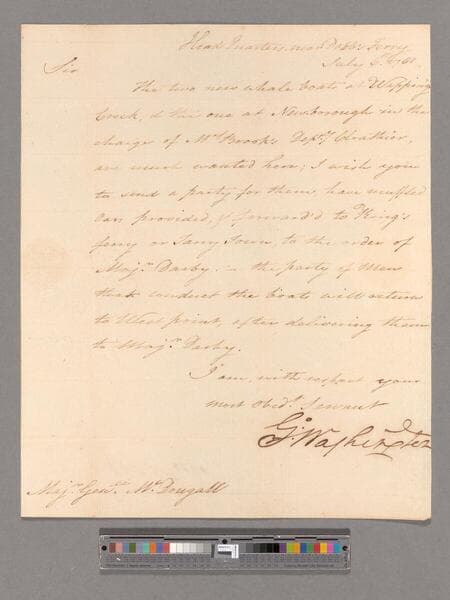 Head Quarters near Dobbs Ferry
July 6th 1781
Sir
The two new whale boats at Wapping
Creek, & the one at Newborough in the
charge of Mr. Brooks Depy. Clothier,
are much wanted here; I wish you
to send a party for them, have muffled
oars provided, & forward'd to King's
ferry or Tarry Town, to the order of
Majr. Darby. — the party of Men
that conduct the boats will return
to West point, after delivering them
to Majr. Darby.
I am with respect your
most Obedt. Servant
Go: Washington
Majr. Genl. McDougall